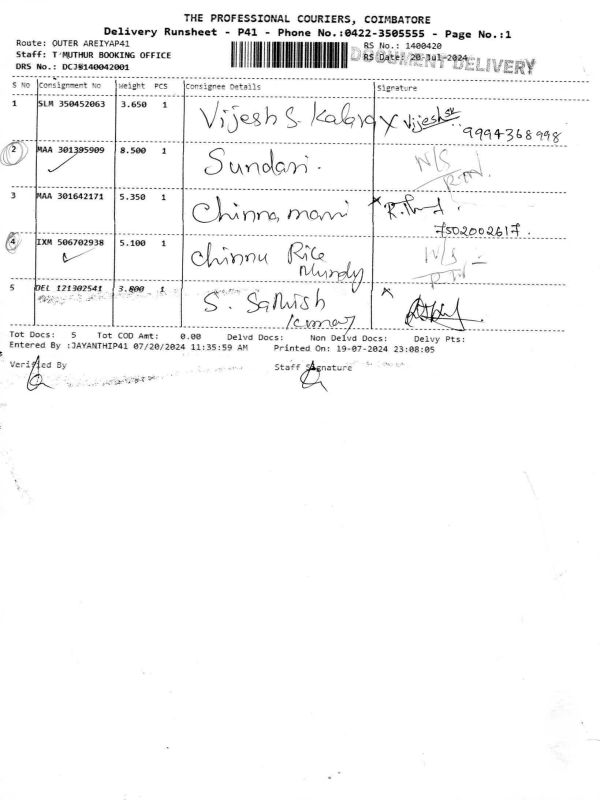 THE PROFESSIONAL COURIERS, COIMBATORE
Delivery Runsheet - P41 - Phone No.:0422-3505555 - Page No.:1
Route: OUTER AREIYAP41
RS No.: 1400420
Staff: T MUTHUR BOOKING OFFICE
RS Date: 20-Jul-2024
DOCUMENT DELIVERY
DRS No.: DCJB140042001
S No Consignment No Weight PCS Consignee Details Signature
1 SLM 350452063 3.650 1 Vijesh S. Kalara x Vijesh
9994368998
2 MAA 301395909 8.500 1 Sundari. N/S
3 MAA 301642171 5.350 1 Chinna mani
7502002617.
4 IXM 506702938 5.100 1 Chinnu Rice N/S
Mundy
5 DEL 121302541 3.800 1 S. Sathish
Kumar
Tot Docs: 5 Tot COD Amt: 0.00 Delvd Docs: Non Delvd Docs: Delvy Pts:
Entered By :JAYANTHIP41 07/20/2024 11:35:59 AM Printed On: 19-07-2024 23:08:05
Verified By Staff Signature